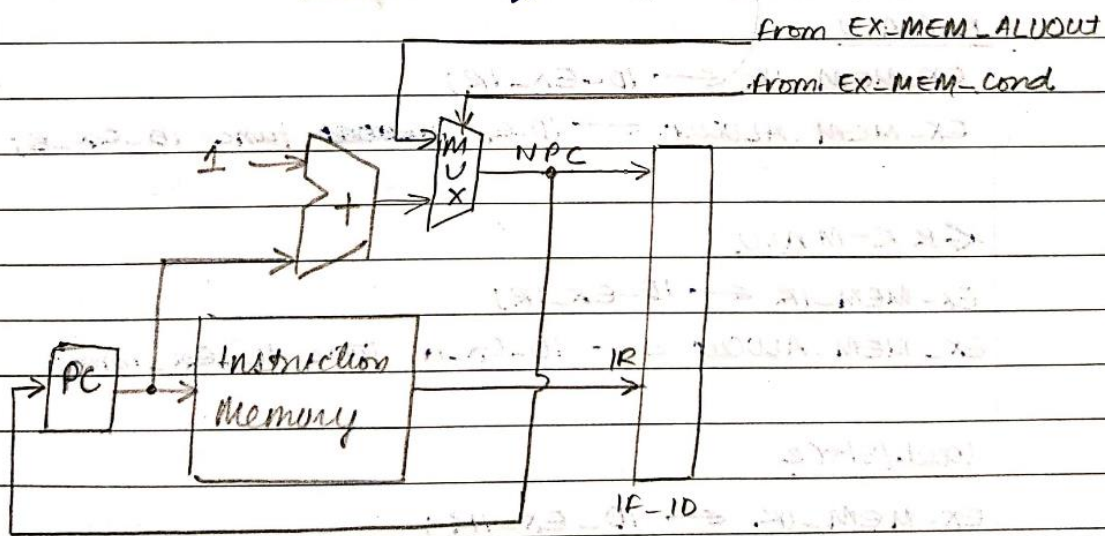 from EX-MEM-ALUOUT
from EX-MEM-Cond
1
+
MUX
NPC
PC
Instruction
Memory
IR
IF-ID